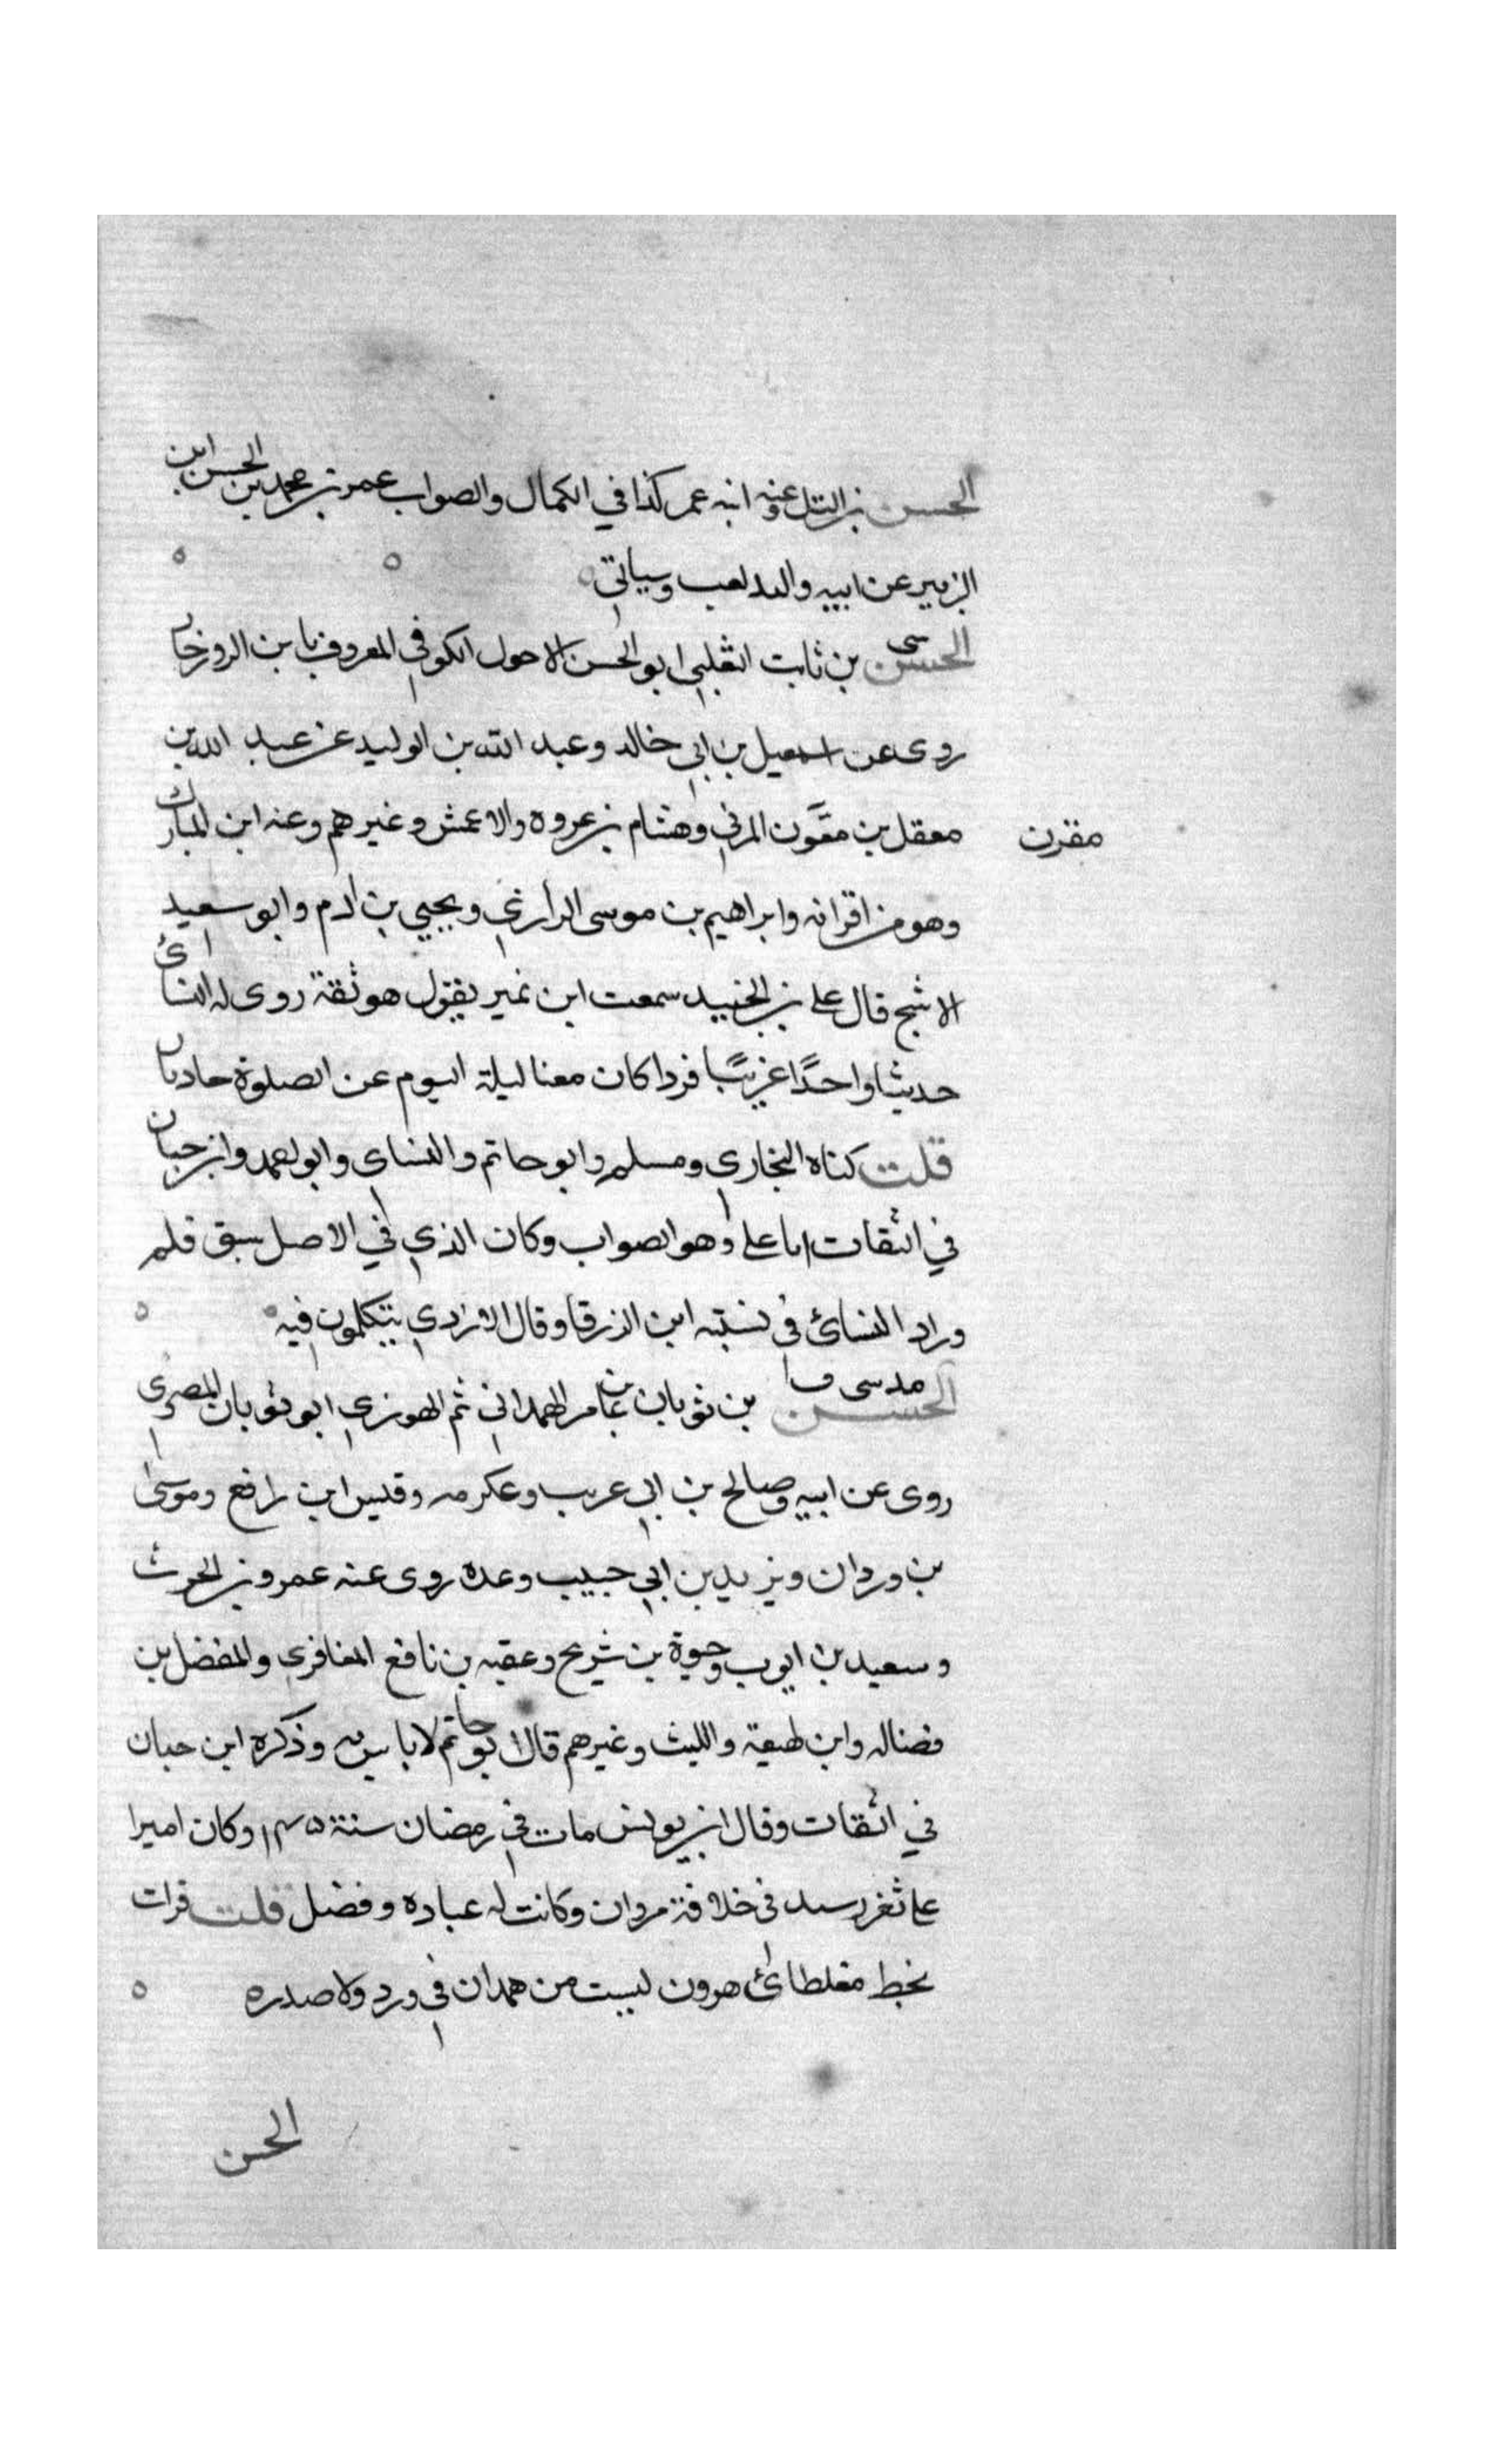 الحسن بن التل وعنه ابنه عمر كذا في الكمال والصواب عمر بن محمد بن الحسن ابن
الزبير عن ابيه والتل لقب وسياتي
الحسن سى بن ثابت الثعلبي ابو الحسن الاحول الكوفي المعروف بابن الروزجار
روى عن اسمعيل بن ابي خالد وعبد الله بن الوليد عن عبد الله بن
معقل بن مقون المزني وهشام بن عروه والاعمش وغيرهم وعنه ابن المبارك
مقرن
وهو من اقرانه وابراهيم بن موسى الرازي ويحيي بن ادم وابو سعيد
الاشج قال علي بن الجنيد سمعت ابن نمير يقول هو ثقة روى له النسائ
حديثا واحدًا غريبًا فردا كان معنا ليلة النوم عن الصلوة حاديان
قلت كناه البخاري ومسلم وابو حاتم والنساى وابو احمد وابن حبان
في الثقات ابا علي وهو الصواب وكان الذي في الاصل سبق قلم
وزاد النسائ في نسبته ابن الزرقا وقال الازدي يتكلمون فيه
الحسن مد سى ق بن ثوبان بن عامر الهمداني ثم الهوزني ابو ثوبان المصري
روى عن ابيه وصالح بن ابي عريب وعكرمه وقيس ابن رافع وموسى
بن وردان ويزيد بن ابي حبيب وعده روى عنه عمرو بن الحرث
وسعيد بن ايوب وحيوة بن شريح وعقبه بن نافع المغافرى والمفضل بن
فضاله وابن لهيعة والليث وغيرهم قال ابو حاتم لا باس به وذكره ابن حبان
في الثقات وقال ابن يونس مات في رمضان سنة ١٤٥ وكان اميرا
على ثغر رسيد في خلافة مروان وكانت له عباده وفضل قلت قرات
بخط مغلطائ هوزن ليست من همدان في ورد ولا صدره
الحسن